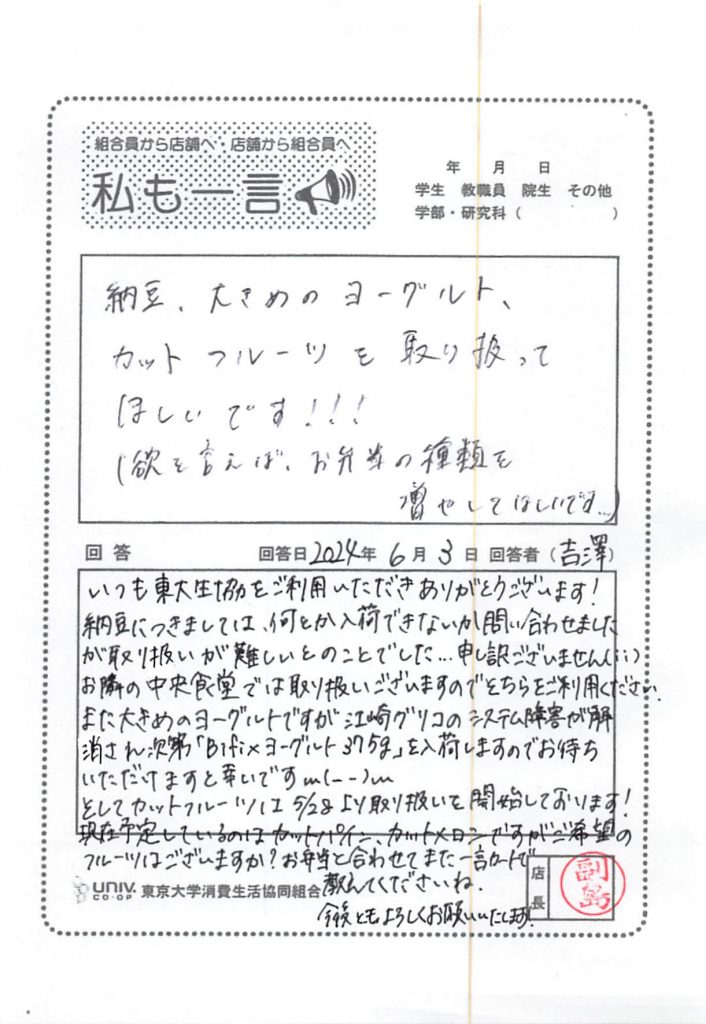 組合員から店舗へ・店舗から組合員へ
私も一言
年 月 日
学生 教職員 院生 その他
学部・研究科（ ）
納豆、大きめのヨーグルト、
カットフルーツを取り扱って
ほしいです!!!
(欲を言えば、お弁当の種類を
増やしてほしいです…)
回答 回答日2024年6月3日 回答者（吉澤）
いつも東大生協をご利用いただきありがとうございます!
納豆につきましては、何とか入荷できないか問い合わせました
が取り扱いが難しいとのことでした…申し訳ございません(;;)
お隣の中央食堂では取り扱いございますのでそちらをご利用ください。
また大きめのヨーグルトですが江崎グリコのシステム障害が解
消され次第「Bifixヨーグルト375g」を入荷しますのでお待ち
いただけますと幸いですm(--)m
そしてカットフルーツは5/28より取り扱いを開始しております!
現在予定しているのはカットパイン、カットメロンですがご希望の
フルーツはございますか?お弁当と合わせてまた一言カードで
教えてくださいね。
今後ともよろしくお願いいたします!
UNIV. CO-OP 東京大学消費生活協同組合
店長
副島